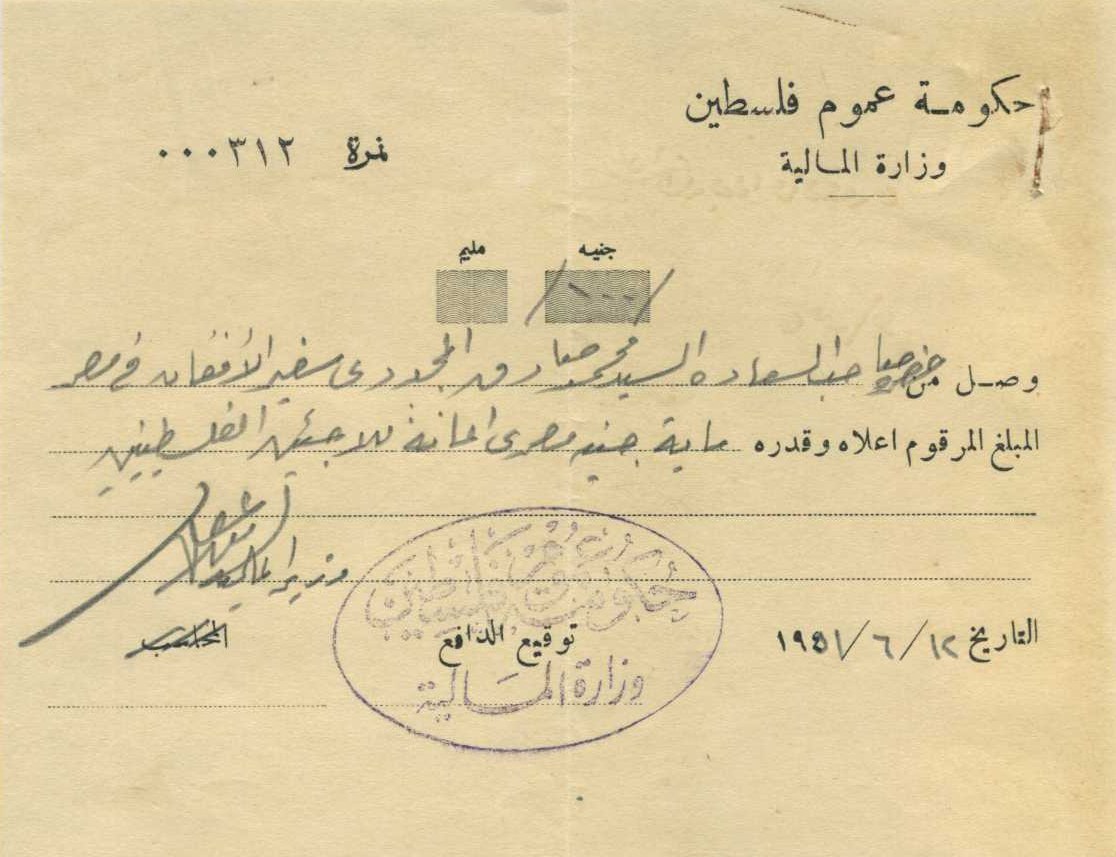 حكومة عموم فلسطين
وزارة المالية
نمرة ٠٠٠٣١٢
جنيه مليم
/١٠٠/
وصل من حضرة صاحب السعاده السيد محمد صادق المجددى سفير الأفغان في مصر
المبلغ المرقوم اعلاه وقدره ماية جنيه مصرى اعانة للاجئين الفلسطينيين
وزير المالية
حكومة عموم فلسطين
وزارة المالية
التاريخ ١٢/٦/١٩٥١
توقيع الدافع
المحاسب